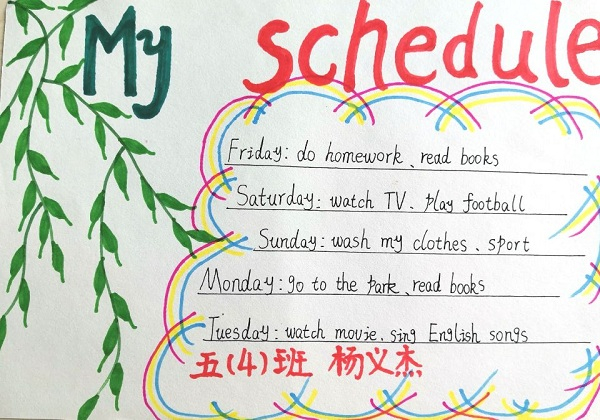 My schedule
Friday: do homework、read books
Saturday: watch TV、play football
Sunday: wash my clothes、sport
Monday: go to the park、read books
Tuesday: watch movie、sing English songs
五(4)班 杨义杰